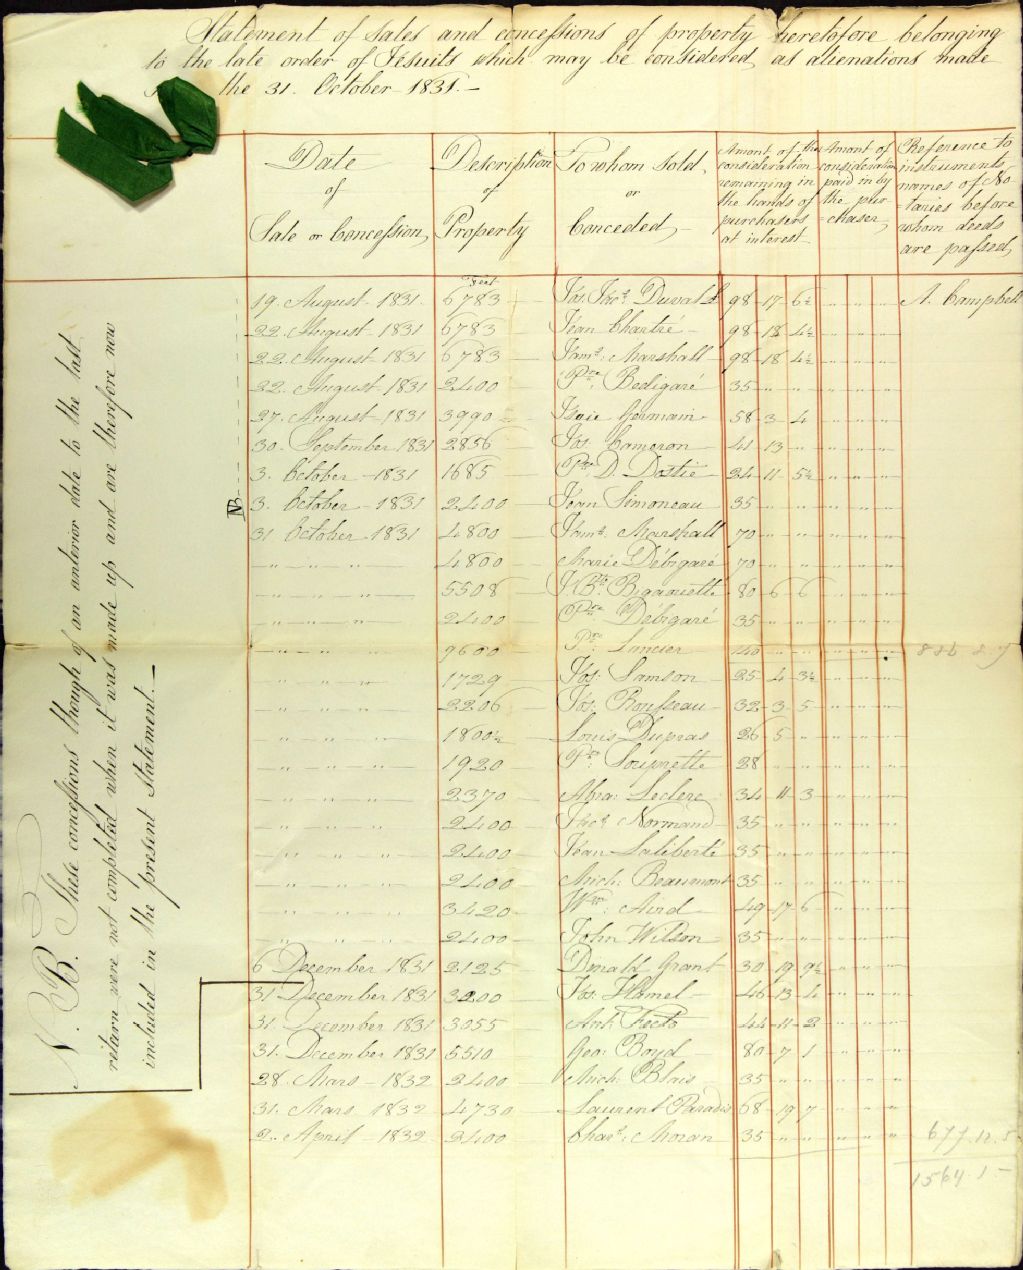 Statement of Sales and concessions of property heretofore belonging
to the late order of Jesuits which may be considered as alienations made
the 31. October 1831.—
Date of Sale or Concession,
Description of Property
To whom sold, or Conceded,—
Amont of the consideration remaining in the hands of purchasers at interest
Amont of consideration paid in by the purchaser,
Reference to instruments, names of Notaries before whom deeds are passed,
feet
19. August 1831. 6783 Jos. Thos. Duvall 98-17-6½ " " " A. Campbell
22. August 1831 6783 Jean Chartré 98-18-4½ " " "
22. August 1831 6783 Marshall 98-18-4½ " " "
22. August 1831 2400 Pre. Bedigaré 35 " " " " "
27. August 1831 3990 Isaie Germain 58-3-4 " " "
30. September 1831 2856 Jos. Cameron 41-13 " " " "
3. October 1831 1685 Pre. D. Dostie 24-11-5½ " " "
3. October 1831 2400 Jean Simoneau 35 " " " " "
NB
31 October 1831 4800 Marshall 70 " " " " "
" " " " 4800 Marie Débigaré 70 " " " " "
" " " " 5508 J. Bte. Bigaouette 80-6-6 " " "
" " " " 2400 Pre. Débigaré 35 " " " " "
" " " " 9600 Pre. 140 " " " " " 886 8 7
" " " " 1729 Jos. Samson 25-4-3½ " " "
" " " " 2206 Jos. Rousseau 32-3-5 " " "
" " " " 1800½ Louis Dupras 26 5 " " " "
" " " " 1920 Pre. 28 " " " " "
" " " " 2370 Abra: Leclerc 34-11-3 " " "
" " " " 2400 Normand 35 " " " " "
" " " " 2400 Jean Laliberté 35 " " " " "
" " " " 2400 Mich: Beaumont 35 " " " " "
" " " " 3420 Wm. Aird 49-17-6 " " "
" " " " 2400 John Wilson 35 " " " " "
6 December 1831 2125 Donald Grant 30-19-9½ " " "
31 December 1831 3200 Jos: Hamel 46-13-4 " " "
31. December 1831 3055 Ant: Fecto 44-11-2 " " "
31. December 1831 5510 Geo: Boyd 80-7-1 " " "
28. Mars 1832 2400 Mich: Blais 35 " " " " "
31. Mars 1832 4730 Laurent Paradis 68-19-7 " " "
2. April 1832 2400 Chas. Moran 35 " " " " " 677.12.5
1564.1.—
N. B. These concessions though of an anterior date to the last
return were not completed when it was made up and are therefore now
included in the present statement.—